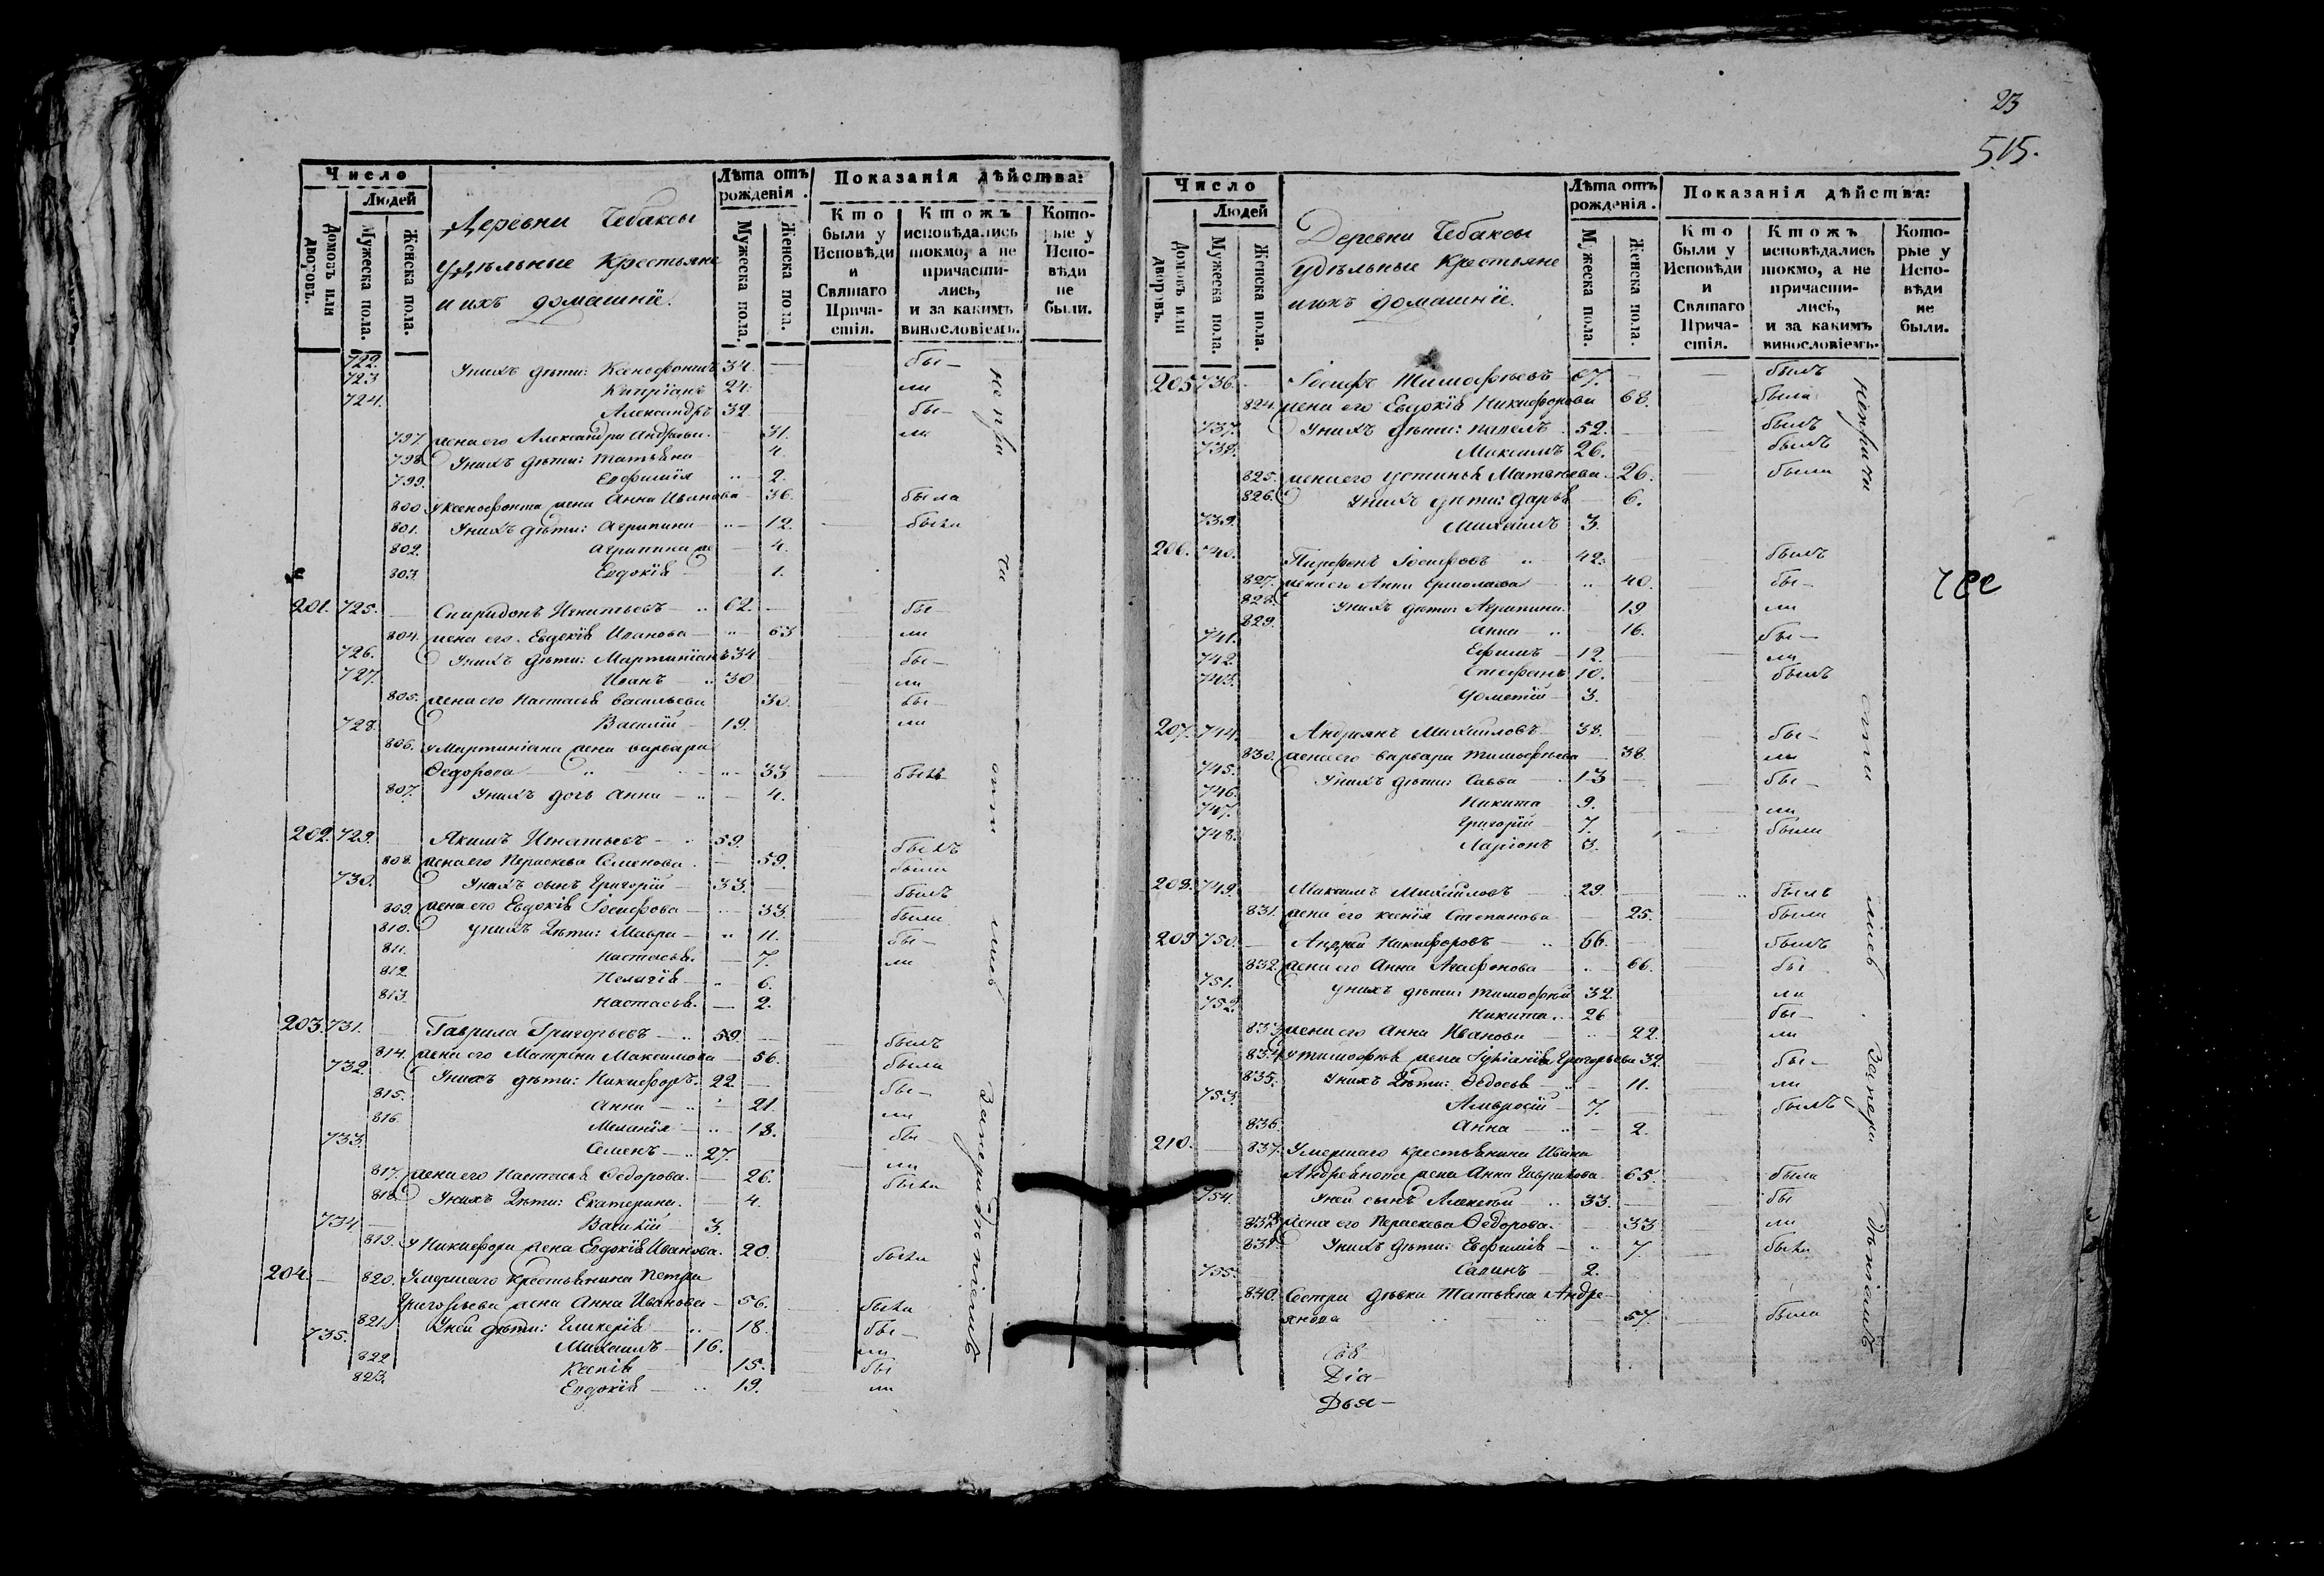 Число
Людей
Домовъ или дворовъ.
Мужеска пола.
Женска пола.
Деревни Чебаксы
удѣльные Крестьяне
и ихъ домашніи.
Лѣта отъ рожденія.
Мужеска пола.
Женска пола.
Показанія дѣйства:
Кто были у Исповѣди и Святаго Прича-стія.
Ктожъ исповѣдались токмо, а не причасти-лись, и за какимъ винословіемъ.
Кото-рые у Испо-вѣди не были.
722. Унихъ дѣти: Ксенофонтъ 34. бы-
723 Кипріанъ 24. ли
724. Александръ 32 бы-
797. жена его Александра Андреева. 31. ли
798. Унихъ дѣти: Татьяна 4.
799. Евфимія 2.
800. у Ксенофонта жена Анна Иванова 36. была
801. Унихъ дѣти: Агрипина 12. была
802. Агрипина же 4.
803. Евдокія 1.
201. 725. Спиридонъ Игнатьевъ 62. бы-
804. жена его Евдокія Иванова 63 ли
726. Унихъ дѣти: Мартиніанъ 34 бы-
727. Иванъ 30 ли
805. жена его Настасья Васильева 30. бы-
728. Василій 19. ли
806. у Мартиніана жена Варвара
Ѳедорова 33 была
807. Унихъ дочь Анна 4.
202. 729. Якимъ Игнатьевъ 59. былъ
808. жена его Пераскева Семенова. 59. была
730. Унихъ сынъ Григорій 33. былъ
809. жена его Евдокія Іосифова 33. была
810. Унихъ Дѣти: Мавра 11. бы-
811. Настасья. 7. ли
812. Пелагія 6.
813. Настасья. 2.
203. 731. Гаврила Григорьевъ 59. былъ
814. жена его Матрёна Максимова 56. была
732. Унихъ дѣти: Никифоръ. 22. бы-
815. Анна 21. ли
816. Меланія 18. бы-
733. Семенъ 27. ли
817. жена его Настасья Ѳедорова. 26. была
818. Унихъ Дѣти: Екатерина. 4.
734 Василій 3.
819. у Никифора жена Евдокія Иванова. 20. была
204. 820. Умершаго крестьянина Петра
Григорьева жена Анна Иванова 56. была
821. Уней дѣти: Гликерія 18. бы-
735. Михаилъ 16. ли
822 Ксенія 15. бы
823. Евдокія 19. ли
не при ча сти лись За нерадѣніемъ
23
515.
Число
Людей
Домовъ или дворовъ.
Мужеска пола.
Женска пола.
Деревни Чебаксы
удѣльные Крестьяне
и ихъ домашніи.
Лѣта отъ рожденія.
Мужеска пола.
Женска пола.
Показанія дѣйства:
Кто были у Исповѣди и Святаго Прича-стія.
Ктожъ исповѣдались токмо, а не причасти-лись, и за какимъ винословіемъ.
Кото-рые у Испо-вѣди не были.
205 736. Іосифъ Тимофѣевъ 67. былъ
824. жена его Евдокія Никифорова 68. была
737. Унихъ дѣти: Павелъ 52. былъ
738. Максимъ 26. былъ
825. жена его Устинья Матвѣева 26. была
826. Унихъ дѣти: Дарья 6.
739. Михаилъ 3.
206. 740. Парфенъ Іосифовъ 42. былъ
827. жена его Анна Ермолаева 40. бы-
828. Унихъ дѣти: Агрипина. 19 ли
829. Анна 16. бы-
741. Ефимъ 12. ли
742. Стефанъ 10. былъ
743. Дометій 3.
207. 744. Андріянъ Михайловъ 38. бы-
830. жена его Варвара Тимофѣева 38. ли
745. Унихъ дѣти: Савва 13 бы-
746. Никита 9. ли
747. Григорій 7. были
748. Ларіонъ 3.
208. 749. Максимъ Михайловъ 29. былъ
831. жена его Ксенія Степанова 25. была
209 750. Андрей Никифоровъ 66. былъ
832. жена его Анна Агафонова 66. бы
751. Унихъ дѣти: Тимофей 32. ли
752. Никита. 26 бы-
833 жена его Анна Иванова 22. ли
834. у Тимофея жена Григорьева 32. бы-
835. Унихъ Дѣти: Ѳедосья 11. ли
753. Амвросій 7. былъ
836. Анна 2.
210. 837. Умершаго крестьянина Ивана
Андреянова жена Анна Гаврилова 65. была
754. Уней сынъ Алексѣй 33. бы
838 жена его Пераскева Ѳедорова. 33 ли
839. Унихъ дѣти: Евфимія 7. была
755. Савинъ 2.
840. Сестра дѣвка Татьяна Андре-
янова 57. была
Діа-
Дья-
непричи сти лись За нера дѣніемъ